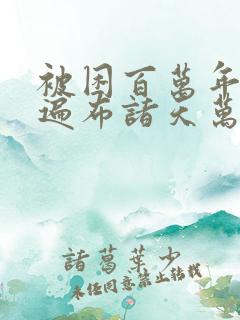 被困百萬年
遍布諸天萬
諸葛葉少
未經同意禁止轉載